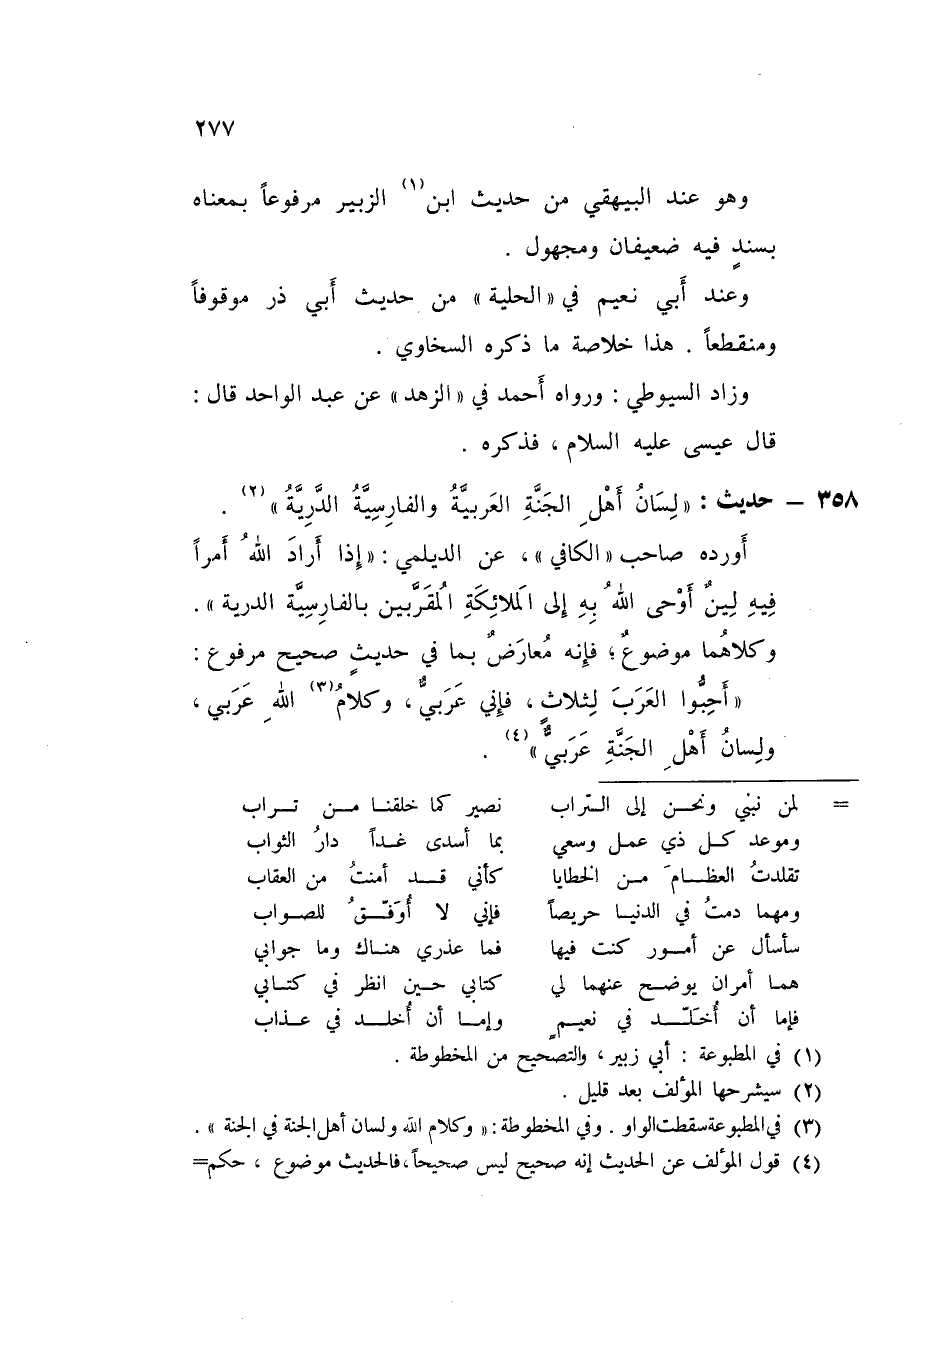 ٢٧٧
وهو عند البيهقي من حديث ابن(١) الزبير مرفوعاً بمعناه
بسندٍ فيه ضعيفان ومجهول .
وعند أَبي نعيم في «الحلية» من حديث أَبي ذر موقوفاً
ومنقطعاً . هذا خلاصة ما ذكره السخاوي .
وزاد السيوطي : ورواه أَحمد في «الزهد» عن عبد الواحد قال :
قال عيسى عليه السلام ، فذكره .
٣٥٨ – حديث : «لِسَانُ أَهْلِ الجَنَّةِ العَرَبيَّةُ والفارِسِيَّةُ الدَّرِيَّةُ»(٢) .
أَورده صاحب «الكافي» ، عن الديلمي : «إِذا أَرادَ اللهُ أَمراً
فِيهِ لِينٌ أَوْحى اللهُ بِهِ إِلى الملائِكَةِ المُقَرَّبين بالفارِسِيَّة الدرية» .
وكلاهُما موضوعٌ ؛ فإِنه مُعارَضٌ بما في حديثٍ صحيح مرفوع :
«أَحِبُّوا العَرَبَ لِثلاثٍ ، فإِني عَرَبيٌّ ، وكلامُ(٣) اللهِ عَرَبي ،
ولِسانُ أَهْلِ الجَنَّةِ عَرَبيٌّ»(٤) .
= لمن نبني ونحن إلى التراب نصير كما خلقنا من تراب
وموعد كل ذي عمل وسعي بما أسدى غداً دارُ الثواب
تقلدتُ العظامَ من الخطايا كأني قد أمنتُ من العقاب
ومهما دمتُ في الدنيا حريصاً فإني لا أُوَفَّقُ للصواب
سأسأل عن أمور كنت فيها فما عذري هناك وما جوابي
هما أمران يوضح عنهما لي كتابي حين انظر في كتابي
فإما أن أُخلَّد في نعيمٍ وإما أن أُخلد في عذاب
(١) في المطبوعة : أبي زبير ، والتصحيح من المخطوطة .
(٢) سيشرحها المؤلف بعد قليل .
(٣) في المطبوعة سقطت الواو . وفي المخطوطة : « وكلام الله ولسان أهل الجنة في الجنة » .
(٤) قول المؤلف عن الحديث إنه صحيح ليس صحيحاً، فالحديث موضوع ، حكم=